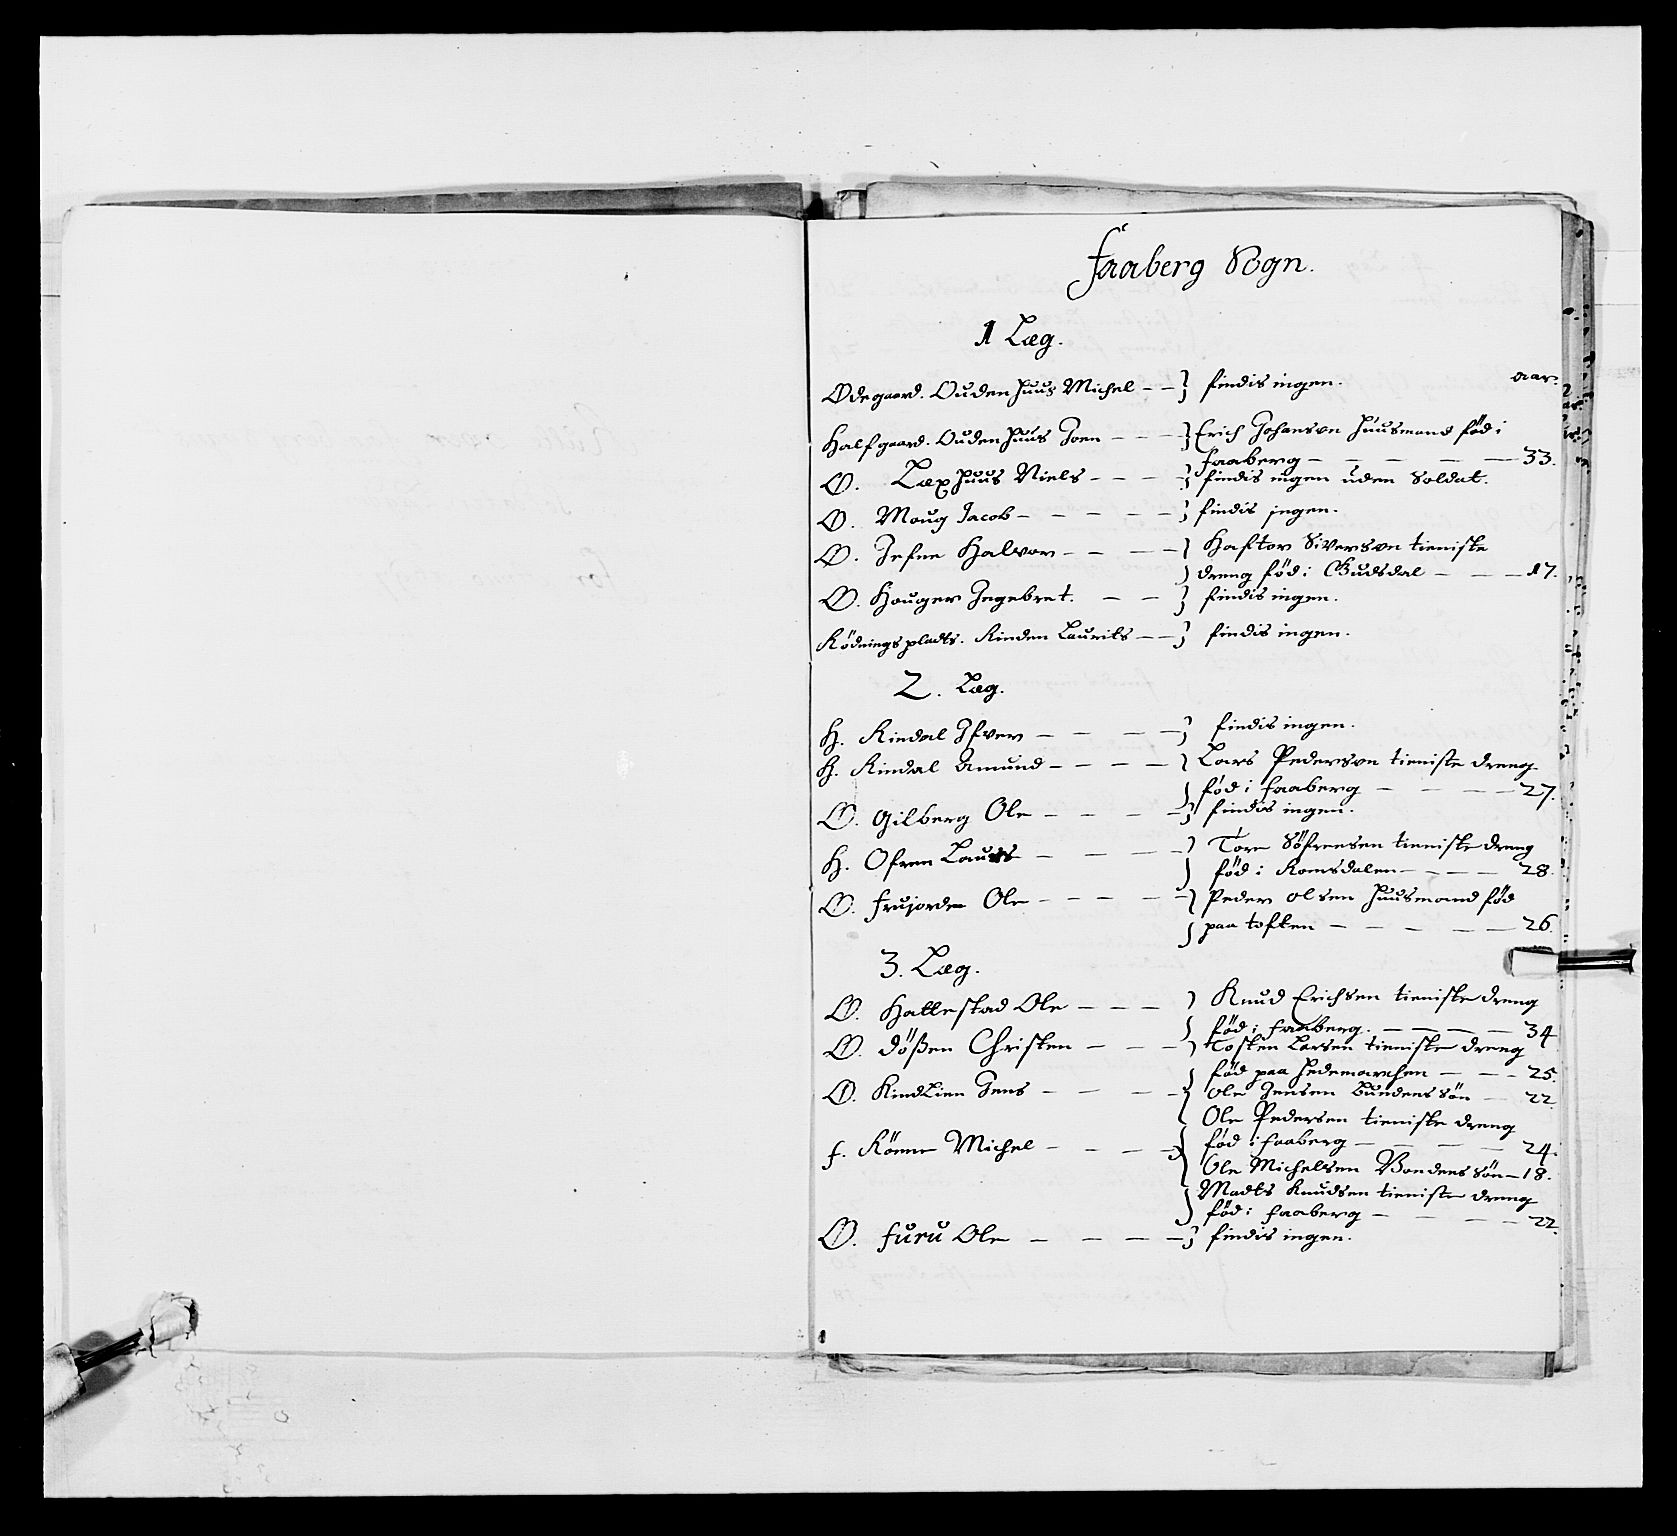 Faaberg Sogn.
1 Læg.
aar.
Ødegaard. Ouden huus Michel – – } findis ingen.
Halfgaard. Ouden huus Joen – – – } Erich Johanson huusmand fød i
Faaberg – – – – – 33.
Ø. Læxhuus Niels – – – } findis ingen uden Soldat.
Ø. Moug Jacob – – – – – } findis jngen.
Ø. Jefne Halvor – – – – } Haftor Siverson tieniste
} dreng fød i Gudsdal – – – 17.
Ø. Houger Ingebret. – – } findis ingen.
Rødningspladts. Rinden Laurits – – } findis ingen.
2. Læg.
H. Rindal Ifver – – – – } findis ingen.
H. Rindal Amund – – – – } Lars Pederson tieniste dreng
} fød i Faaberg – – – – 27.
Ø. Gilberg Ole – – – – } findis ingen.
H. Ofren Laurs – – – – } Tore Söfrensen tieniste dreng
} fød i Romsdalen – – – – 28.
Ø. Frujorde Ole – – – – – } Peder olsen huusmand fød
} paa toften – – – – – – 26.
3. Læg.
Ø. Hattestad Ole – – – } Knud Erichsen tieniste dreng
} fød i Faaberg. – – – – – 34
Ø. Dößen Christen – – – } Tosten Larsen tieniste dreng
} fød paa hedemarchen – – – 25.
Ø. Kindlien Jens – – – – } Ole Jensen Bundens sön – 22.
Ole Pedersen tieniste dreng
f. Rönne Michel – – – – } fød i faaberg – – – – 24.
Ole Michelsen Bondens sön – 18.
} Madts Knudsen tieniste dreng
} fød i faaberg – – – – 22.
Ø. Furu Ole – – – – – } findis ingen.